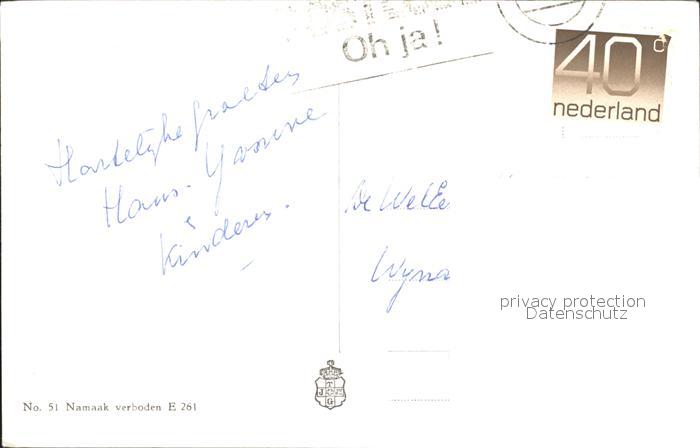 Oh ja!
40c
nederland
Hartelijke groeten
Hans - Yvonne
&
Kinderen.
De Welle
Wyna
privacy protection
Datenschutz
T
J G
No. 51 Namaak verboden E 261